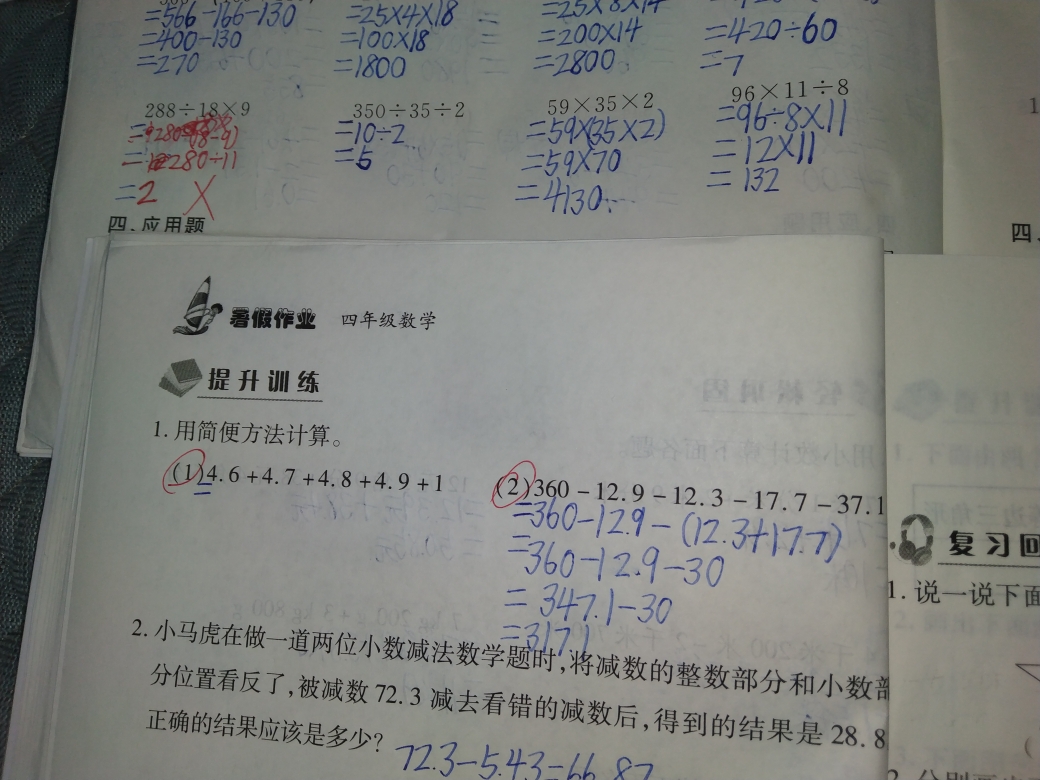 =566-166-130
=25×4×18
=25×8×14
=400-130
=100×18
=200×14
=420÷60
=270
=1800
=2800
=7
288÷18×9
350÷35÷2
59×35×2
96×11÷8
=10÷2
=59×(35×2)
=96÷8×11
=5
=59×70
=12×11
=2 ×
=4130
=132
四、应用题
四、
暑假作业 四年级数学
提升训练
1. 用简便方法计算。
(1)4.6+4.7+4.8+4.9+1
=
(2)360-12.9-12.3-17.7-37.1
=360-12.9-(12.3+17.7)
=360-12.9-30
=347.1-30
=317.1
2. 小马虎在做一道两位小数减法数学题时,将减数的整数部分和小数部
分位置看反了,被减数72.3减去看错的减数后,得到的结果是28.8
正确的结果应该是多少?
72.3-5.43=66.87
复习回
1. 说一说下面